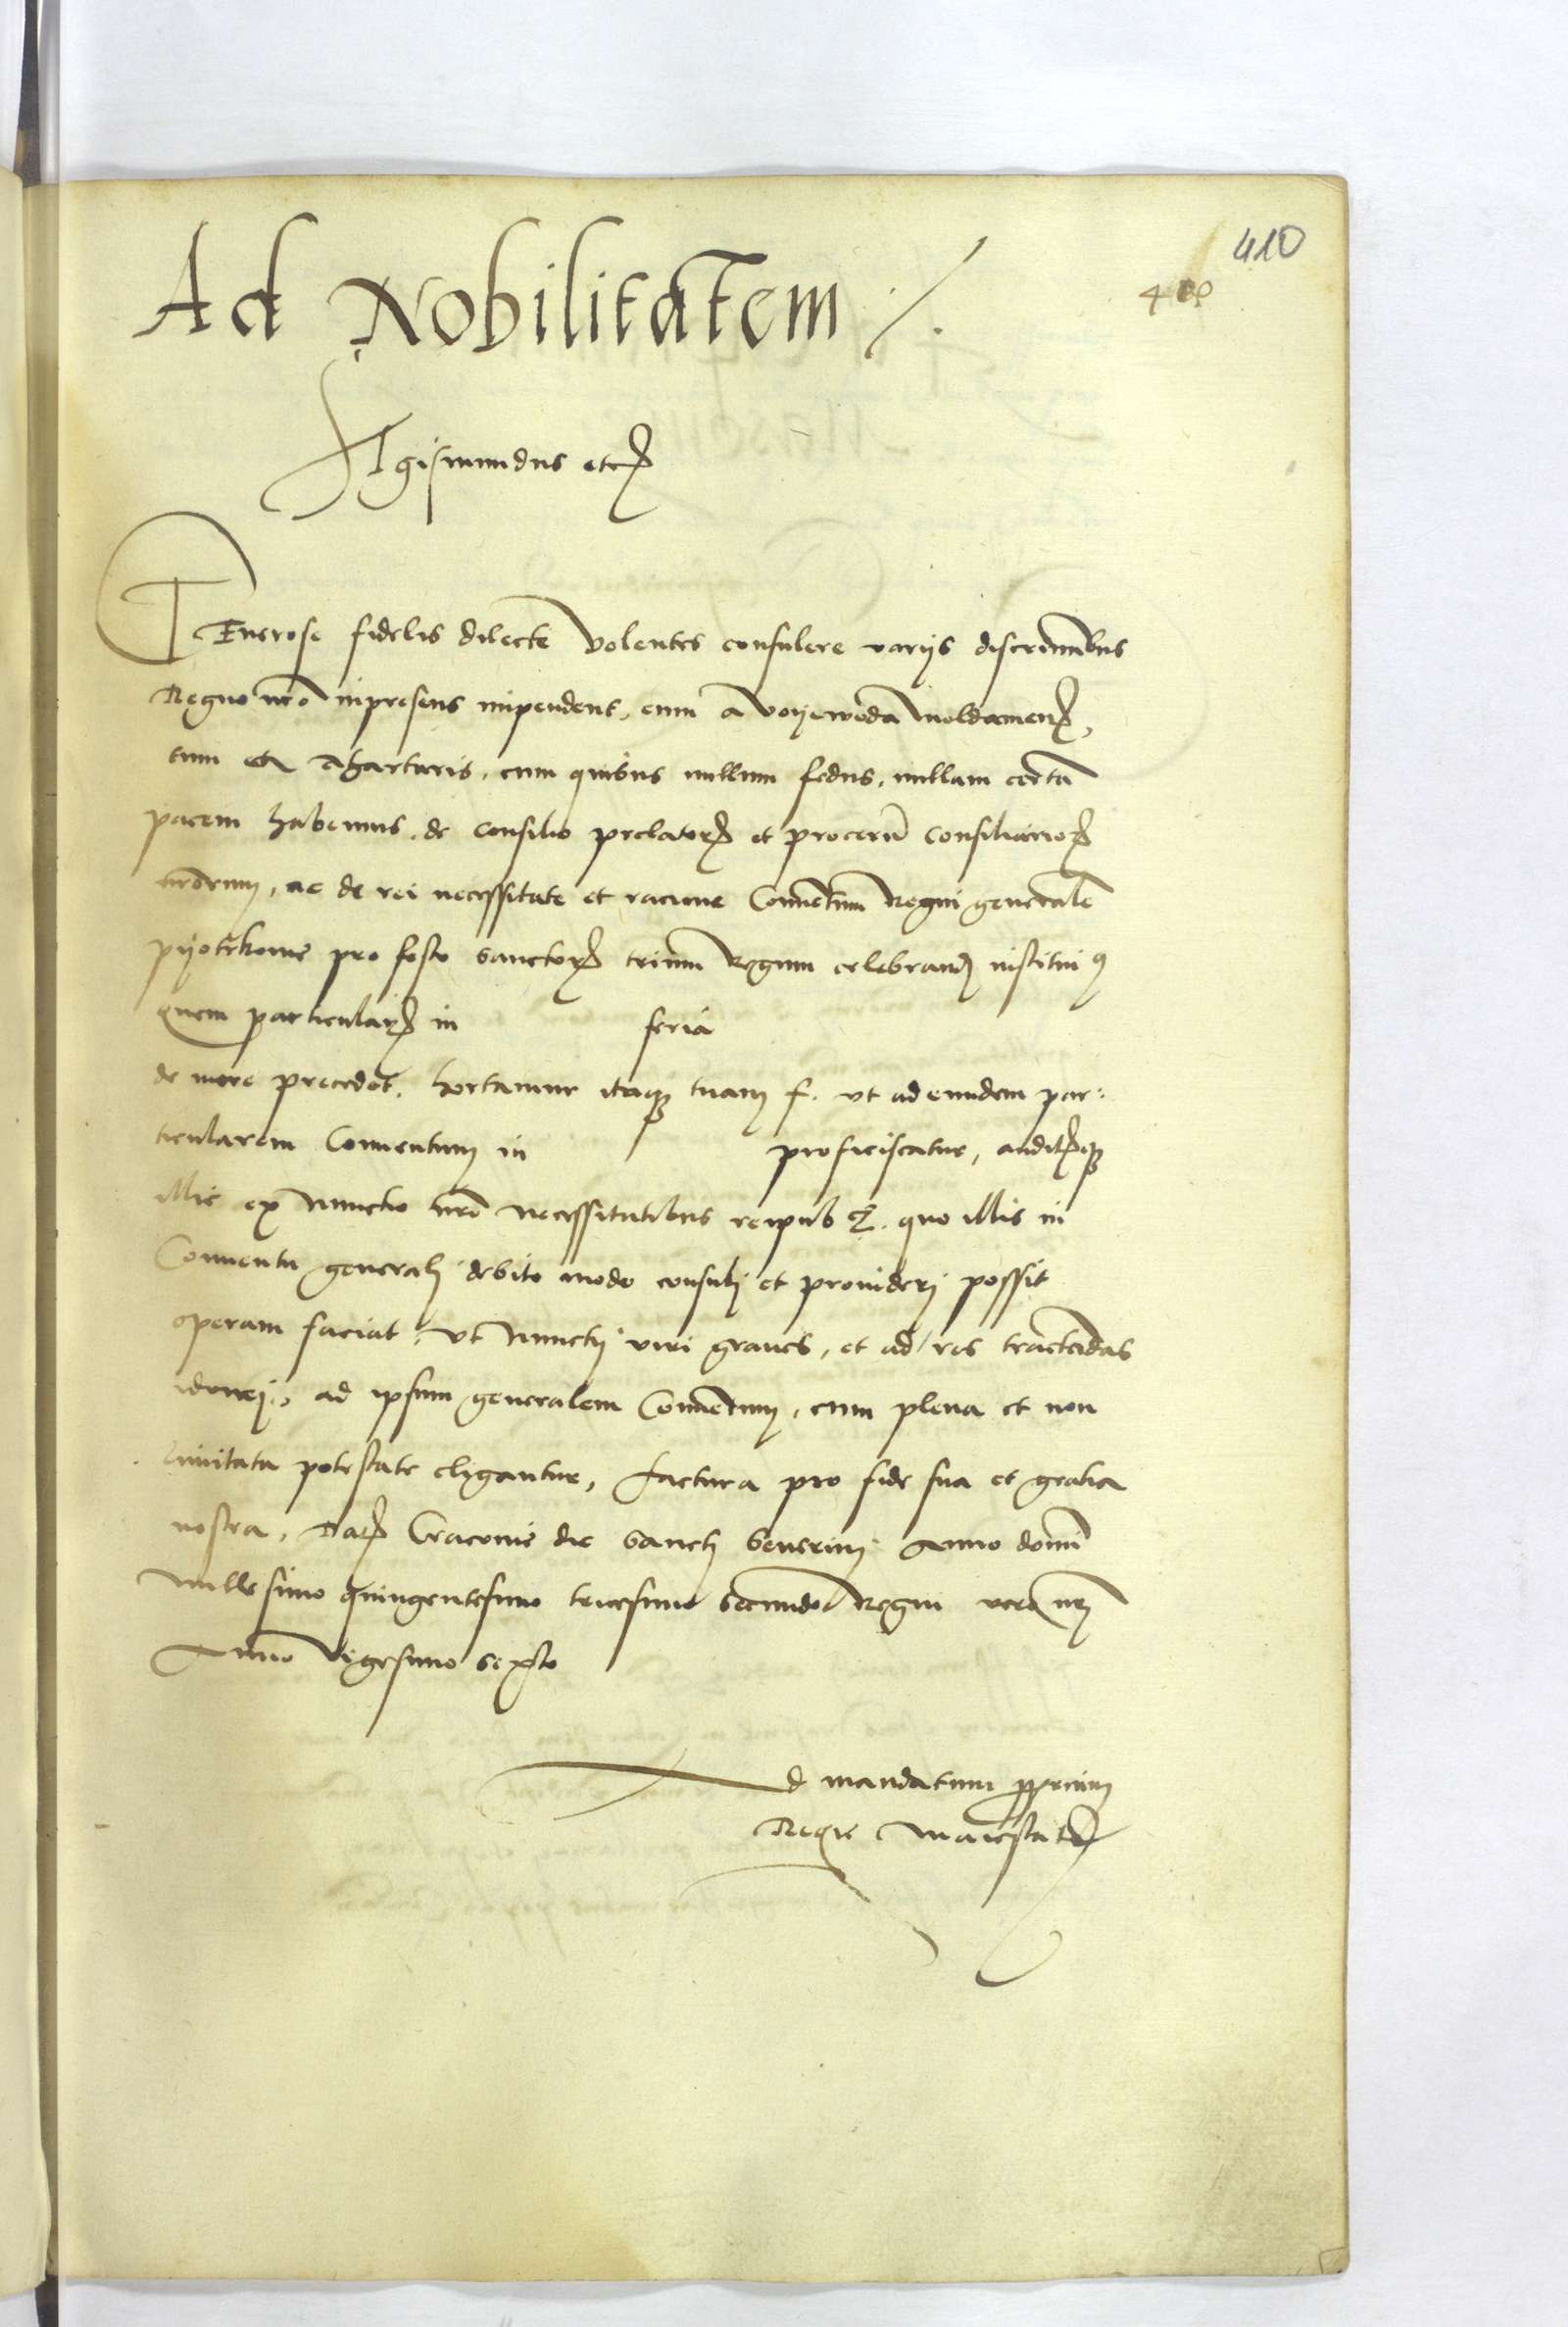 410
Ad Nobilitatem /.
Sigismundus etc
GEnerose fidelis dilecte Volentes consulere varijs discriminibus
Regno nro inpresens impendent, cum a voyewoda moldamen,
tum et a thartaris, cum quibus nullum fedus, nullam certa
pacem habemus, de consilio prelator et proceru consiliario
nrorum, ac de rei necessitate et racione Conuentum Regni generale
pyotrkouie pro festo sanctor trium Regum celebrand instituim9
quem particular in feria
de more precedet. hortamur itaq tuam f. vt ad eundem par:
ticularem Conuentum in proficiscatur, auditisq
illic ex nunctio nro necessitatibus reipub. quo illis in
Conuentu generali debito modo consuli et prouideri possit
operam faciat, vt nunctij viri graues, et ad res tractadas
idonej, ad ipsum generalem Conuentum, cum plena et non
limitata potestate eligantur, factura pro fide sua et gratia
nostra, Dat Cracouie die Sancti Seuerini Anno domi
millesimo quingentesimo tricesimo secundo Regni vero nri
Anno Vigesimo sexto
Ad mandatum pprium
Regie Maiestatis